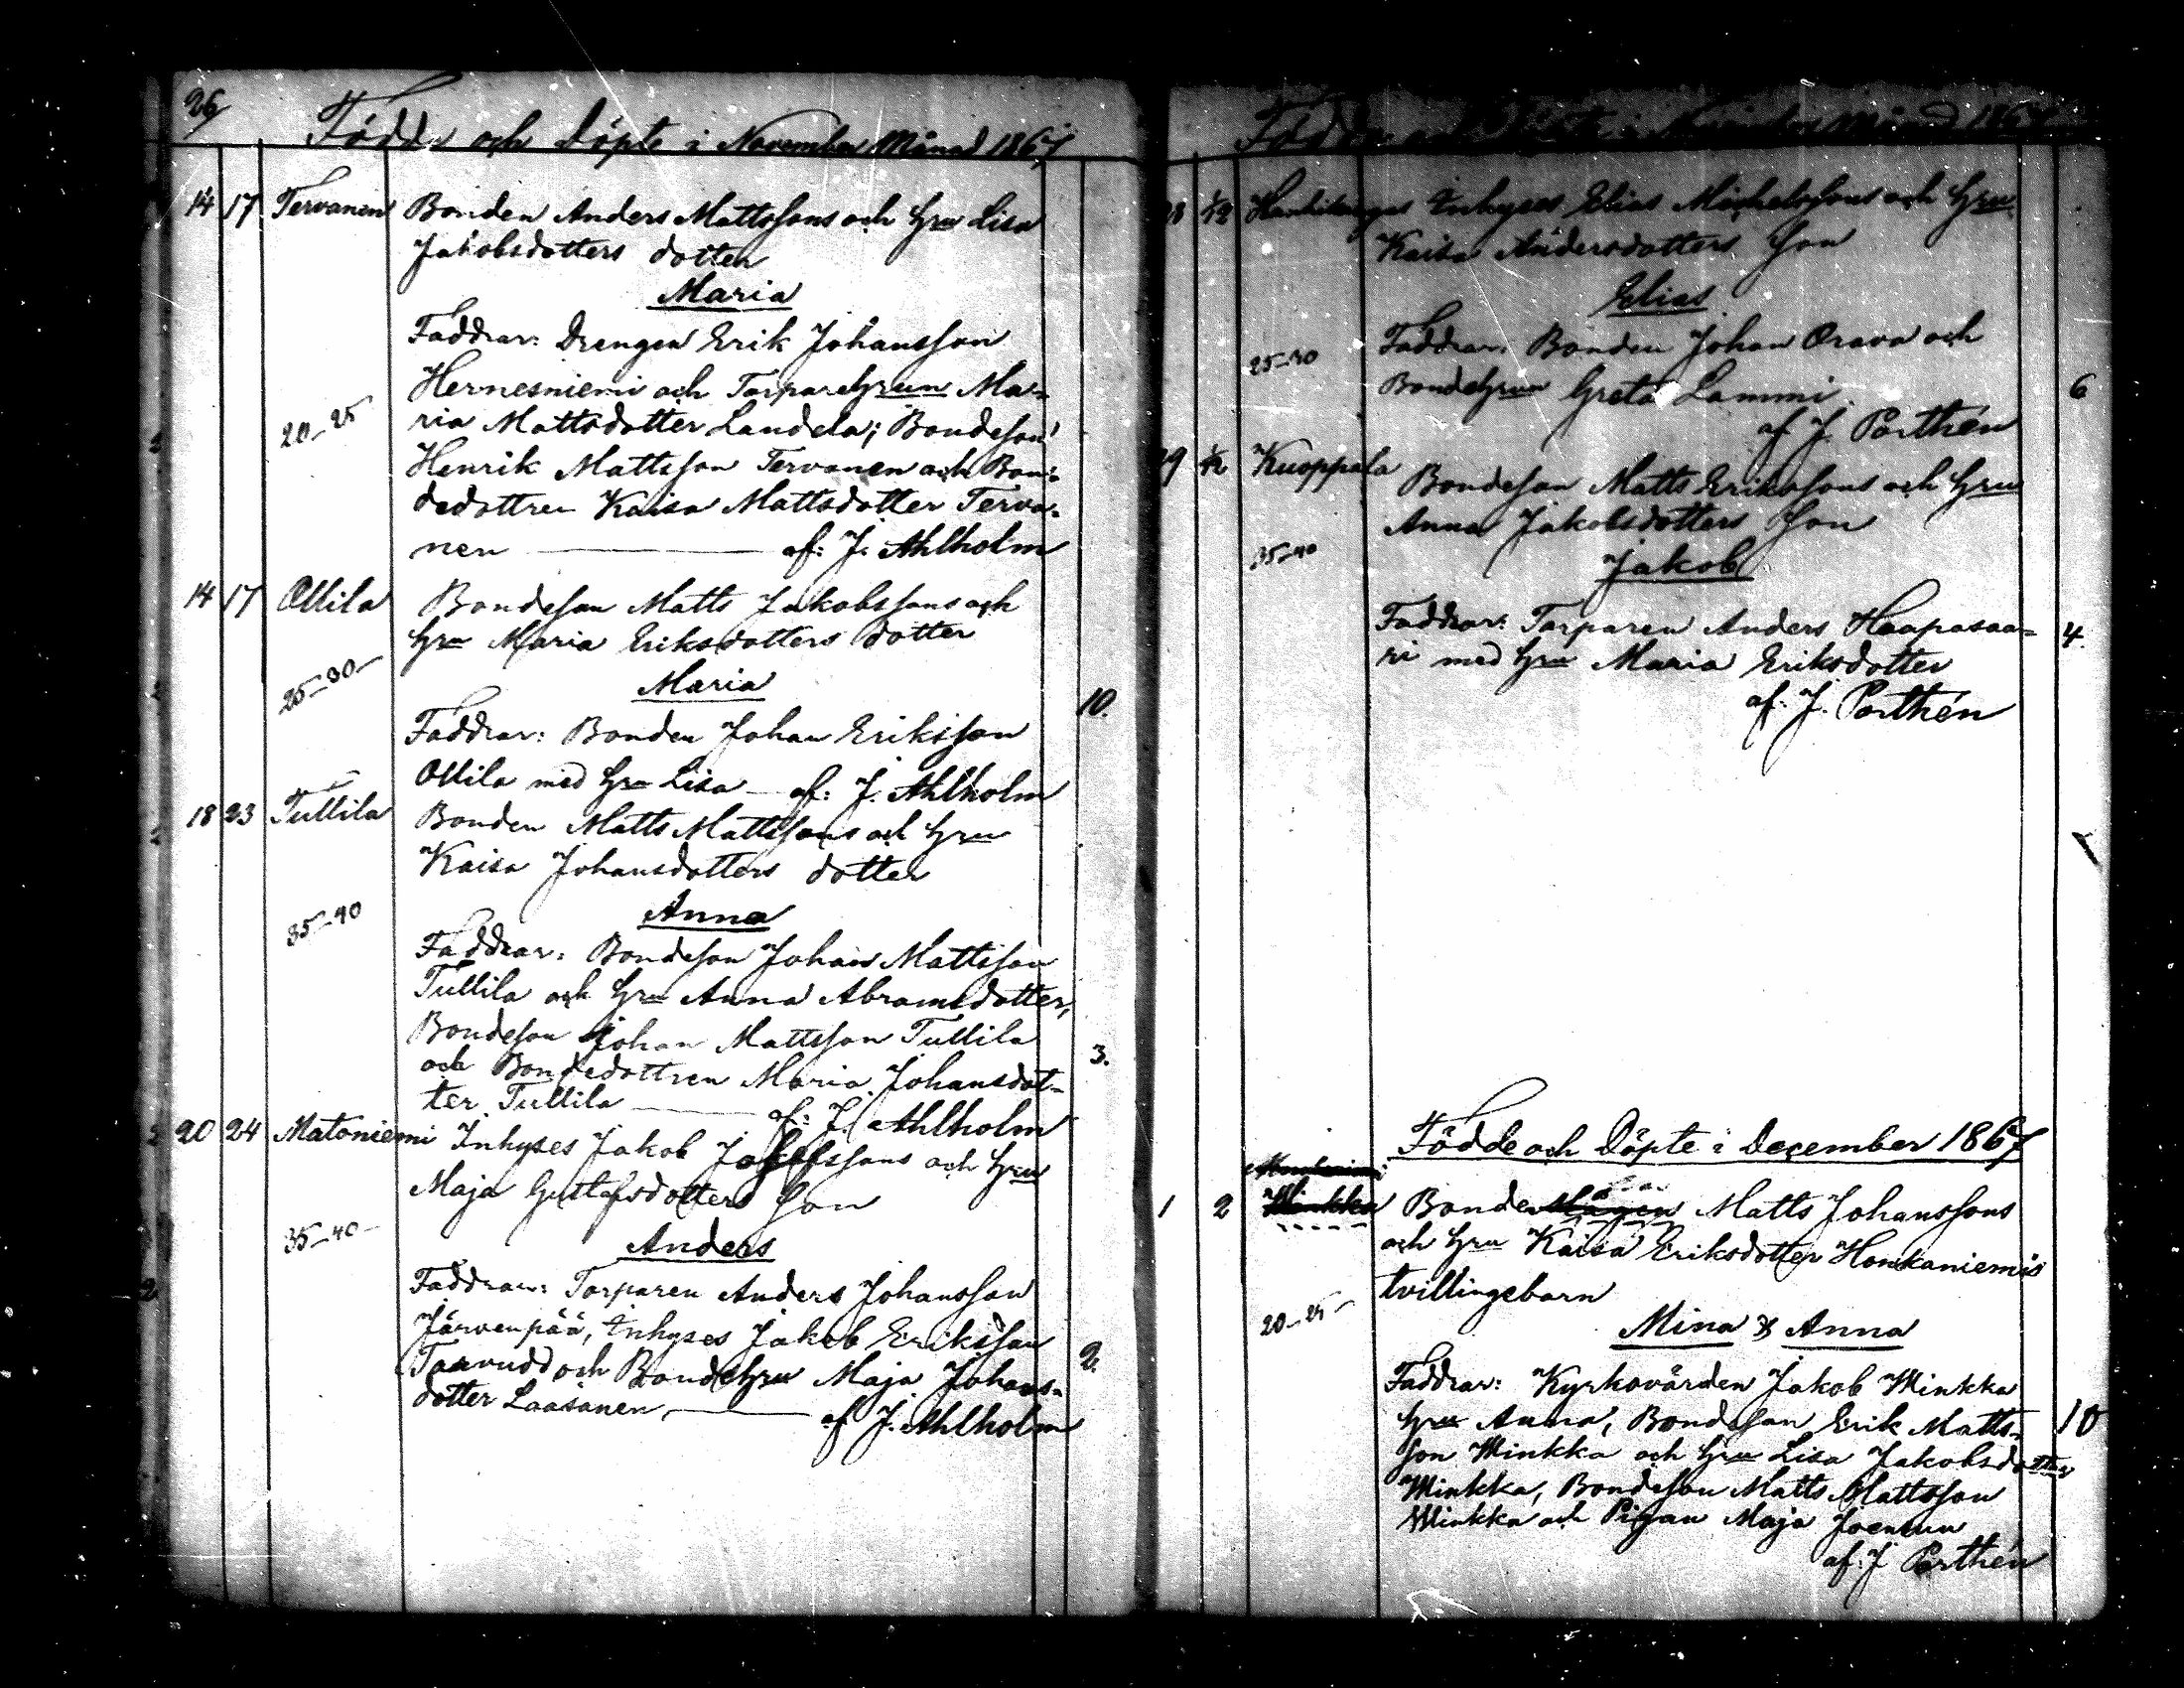 26
Födde och Döpte i November Månad 1867
14 17 Tervanen Bonden Anders Mattssons och Hru Lisa
Jakobsdotters dotter
Maria
Faddrar: Drengen Erik Johansson
Hernesniemi och Torpare Hrun Ma-
20-25 ria Mattsdotter Landela; Bondeson
Henrik Mattsson Tervanen och Bon-
dedottren Kaisa Mattsdotter Terva-
nen — af: J. Ahlholm
14 17 Ollila Bondeson Matts Jakobssons och
Hru Maria Eriksdotters dotter
25-30- Maria
10.
Faddrar: Bonden Johan Eriksson
Ollila med Hru Lisa — af: J. Ahlholm
18 23 Tullila Bonden Matts Mattssons och Hru
Kaisa Johansdotters dotter
35-40 Anna
Faddrar: Bondeson Johan Mattsson
Tullila och Hru Anna Abramsdotter,
Bondeson Johan Mattsson Tullila
och Bondedottren Maria Johansdot- 3.
ter Tullila — af: J. Ahlholm
20 24 Matoniemi Inhyses Jakob Jakobssons och Hru
Maja Gustafsdotters Son
35-40- Anders
Faddrar: Torparen Anders Johansson
Järvenpää, Inhyses Jakob Eriksson
och BondeHru Maja Johans- 2.
dotter Laasanen, — af J. Ahlholm
Födde och Döpte i November Månad 1867
28 1/12 Inhyses Elias Michelssons och Hru
Kaisa Andersdotters Son
Elias
25-30 Faddrar: Bonden Johan Orava och
BondeHrun Greta Lammi. 6
af J. Porthén
29 1/12 Kuoppala Bondeson Matts Erikssons och Hru
Anna Jakobsdotters Son
35-40 Jakob
Faddrar: Torparen Anders Haapasaa- 4.
ri med Hru Maria Eriksdotter
af: J. Porthén
Födde och Döpte i December 1867
1 2 Minkka Bonde Matts Johanssons
och Hru Kaisa Eriksdotter Honkaniemis
tvillingebarn
20-25- Mina & Anna
Faddrar: Kyrkovärden Jakob Minkka
Hru Anna, Bondeson Erik Matts- 10
son Minkka och Hru Lisa Jakobsdotter
Minkka, Bondeson Matts Mattsson
Minkka och Pigan Maja Joensuu
af: J Porthén